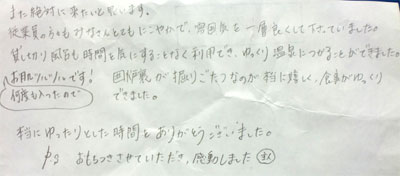 また絶対に来たいと思います。
従業員の方もみなさんとてもにこやかで、雰囲気を一層良くして下さっていました。
貸し切り風呂も時間を気にすることなく利用でき、ゆっくり温泉につかることができました。
お肌ツルツルです！
何度も入ったので
囲炉裏が掘りごたつなのが本当に嬉しく、食事がゆっくり
できました。
本当にゆったりとした時間をありがとうございました。
おもちつきさせていただき、感動しました